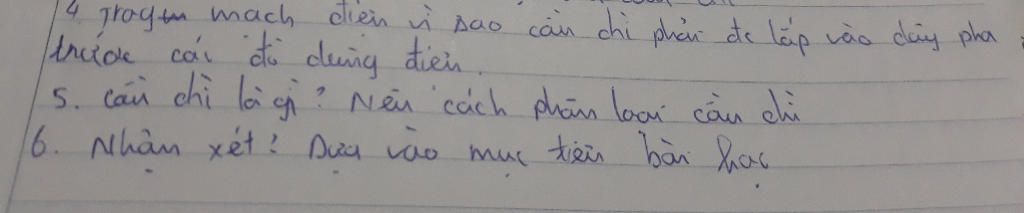 4 Trong mạch điện vì sao cầu chì phải đc lắp vào dây pha
trước các đồ dùng điện.
5. Cầu chì là gì? Nêu cách phân loại cầu chì
6. Nhận xét? Dựa vào mục tiêu bài học